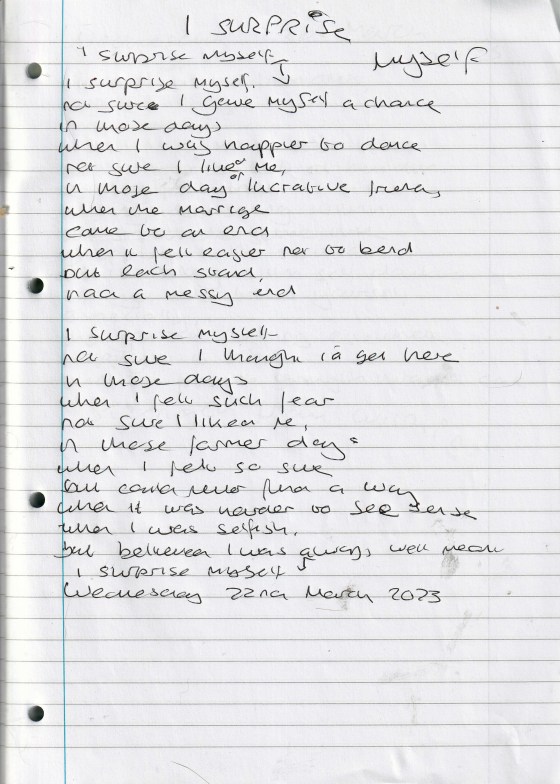 I SURPRISE
I surprise myself
Myself
I surprise myself.
not sure I gave myself a chance
in those days
when I was happier to dance
not sure I liked me,
in those days of lucrative trend,
when the marrige
came to an end
when it felt easier not to bend
but each strand,
had a messy end
I surprise myself
not sure I thought i'd get here
in those days
when I felt such fear
not sure I liked me,
in those former days
when I felt so sure
but could never find a way
when it was harder to see sense
when I was selfish.
but believed I was always well meant
I surprise myself
Wednesday 22nd March 2023